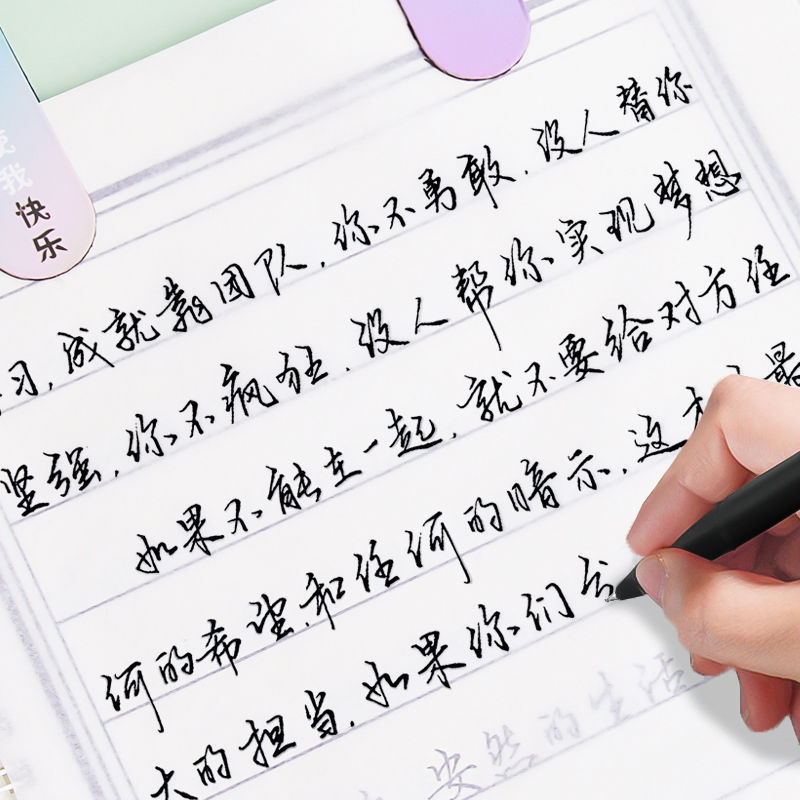 我快乐
习，成就靠团队，你不勇敢，没人替你
坚强，你不疯狂，没人帮你实现梦想
如果不能在一起，就不要给对方任
何的希望和任何的暗示，这才 最
大的担当，如果你们
安然的生活